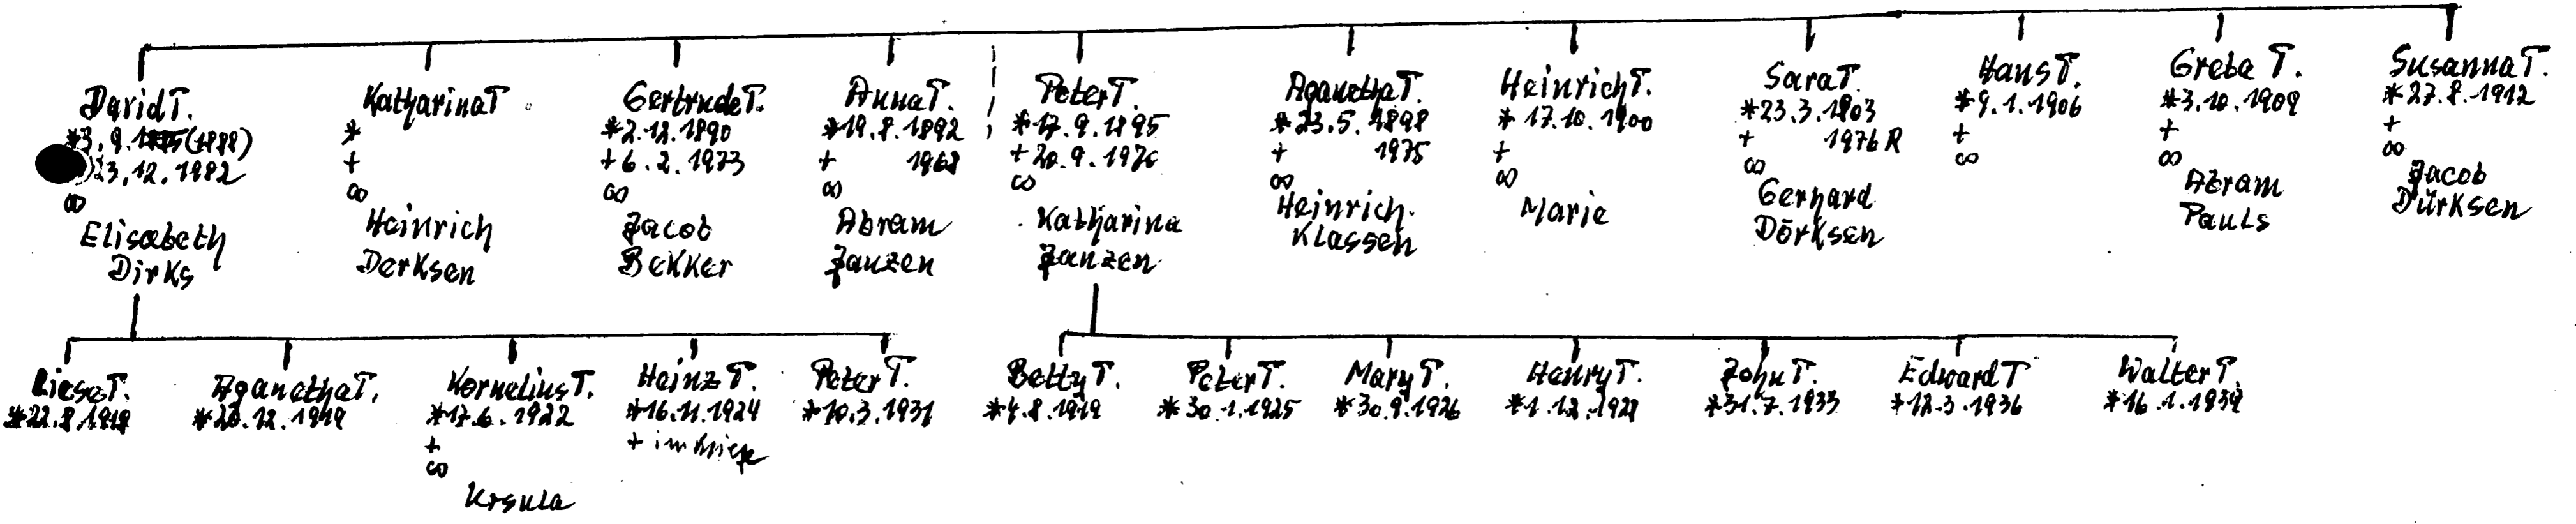 David T.
*3.9. (1888)
23.12.1982
∞
Elisabeth
Dirks
Katharina T
*
+
∞
Heinrich
Derksen
Gertrude T.
*2.12.1890
+6.2.1973
∞
Jacob
Bekker
Anna T.
*19.8.1892
+
∞
Abram
Janzen
Peter T.
*17.9.1895
+20.9.1976
∞
Katharina
Janzen
Aganetha T.
*23.5.1898
+ 1975
∞
Heinrich.
Klassen
Heinrich T.
*17.10.1900
+
∞
Marie
Sara T.
*23.3.1903
+ 1976 R
∞
Gerhard
Dörksen
Hans T.
*9.1.1906
+
∞
Greta T.
*3.10.1909
+
∞
Abram
Pauls
Susanna T.
*27.8.1912
+
∞
Jacob
Dürksen
Liese T.
*22.8.1918
Aganetha T.
*20.12.1919
Kornelius T.
*17.6.1922
+
∞
Ursula
Heinz T.
*16.11.1924
+ im Kriege
Peter T.
*10.3.1931
Betty T.
*4.8.1919
Peter T.
*30.1.1925
Mary T.
*30.9.1926
Henry T.
*1.12.1928
John T.
*31.7.1933
Edward T
*12.3.1936
Walter T.
*16.1.1939